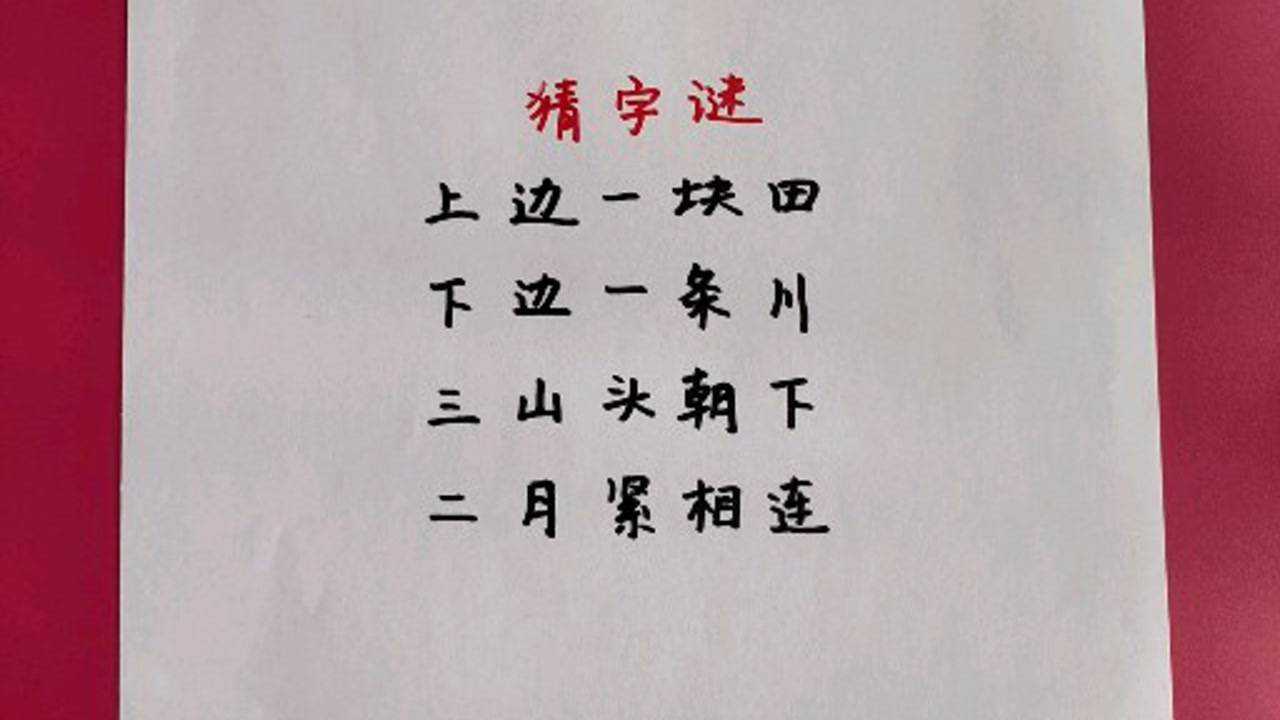 猜字谜
上边一块田
下边一条川
三山头朝下
二月紧相连